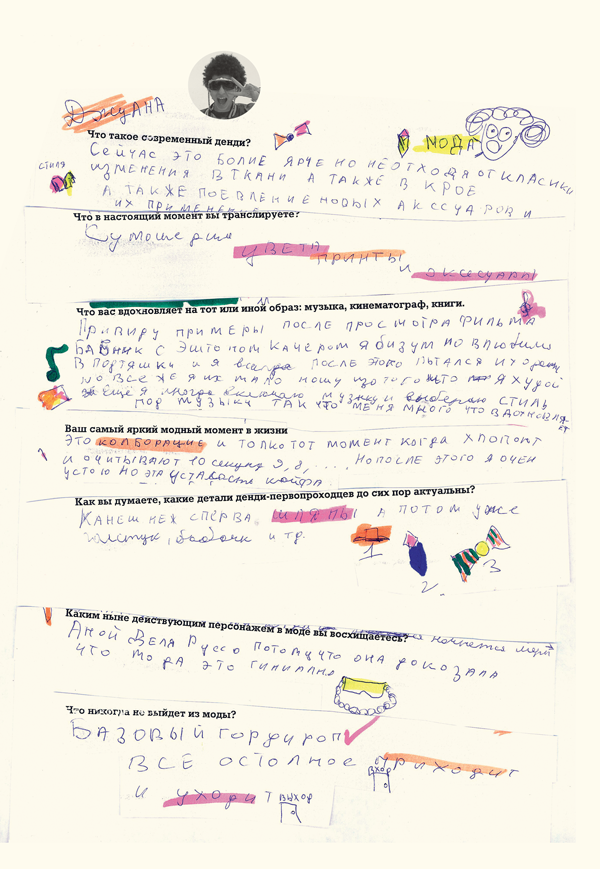 ДжуАНА
Что такое современный денди?
МОДА
стиля
Сейчас это более ярче но не отходя от класики
изменения в ткани а также в крое
а также поевление новых акссуаров и
их применение
Что в настоящий момент вы транслируете?
Сумошедшие
цвета принты
и эксесуары
Что вас вдохновляет на тот или иной образ: музыка, кинематограф, книги.
примеры после просмотра фильма
Бабник с Эштоном Качером я безум но влюбила
в подтяшки и я после этого пытался их
но все же я их мало ношу я худой
ещё я музыку и стиль
под музыку так что меня много что вдохновля
ет
Ваш самый яркий модный момент в жизни
Это колборацие и толко тот момент когда хлопают
и очитывают 10 секунд 9, 8, .... но после этого я очен
устою но эта усталость кайфа
Как вы думаете, какие детали денди-первопроходцев до сих пор актуальны?
Канеш неж сперва шляпы а потом уже
галстук, бабочк и тд.
1
2.
3
Каким ныне действующим персонажем в моде вы восхищаетесь?
Аной Деля Руссо потому что она доказала
что мода это гиниално
Что никогда не выйдет из моды?
Базовый гордироп
все остолное приходит
вход
и уходит
выход